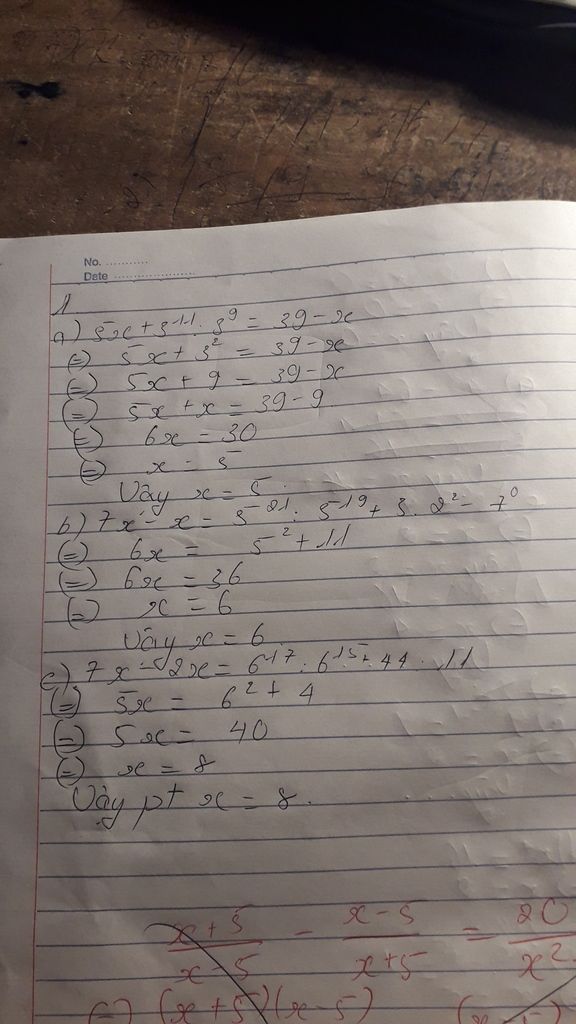 No. ...........
Date .......................
1
a) 5x + 3¹¹ : 3⁹ = 39 - x
(=) 5x + 3² = 39 - x
(=) 5x + 9 = 39 - x
(=) 5x + x = 39 - 9
(=) 6x = 30
(=) x = 5
Vậy x = 5.
b) 7x - x = 5²¹ : 5¹⁹ + 3 . 2² - 7⁰
(=) 6x = 5² + 11
(=) 6x = 36
(=) x = 6
Vậy x = 6.
c) 7x - 2x = 6¹⁷ : 6¹⁵ + 44 : 11
(=) 5x = 6² + 4
(=) 5x = 40
(=) x = 8
Vậy pt x = 8.
x + 5 / x - 5 - x - 5 / x + 5 = 20 / x²
(=) (x + 5)(x - 5)